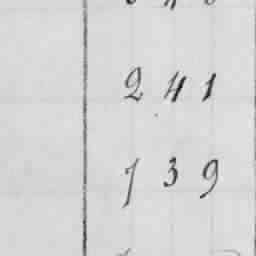 2 4 1
7 3 9